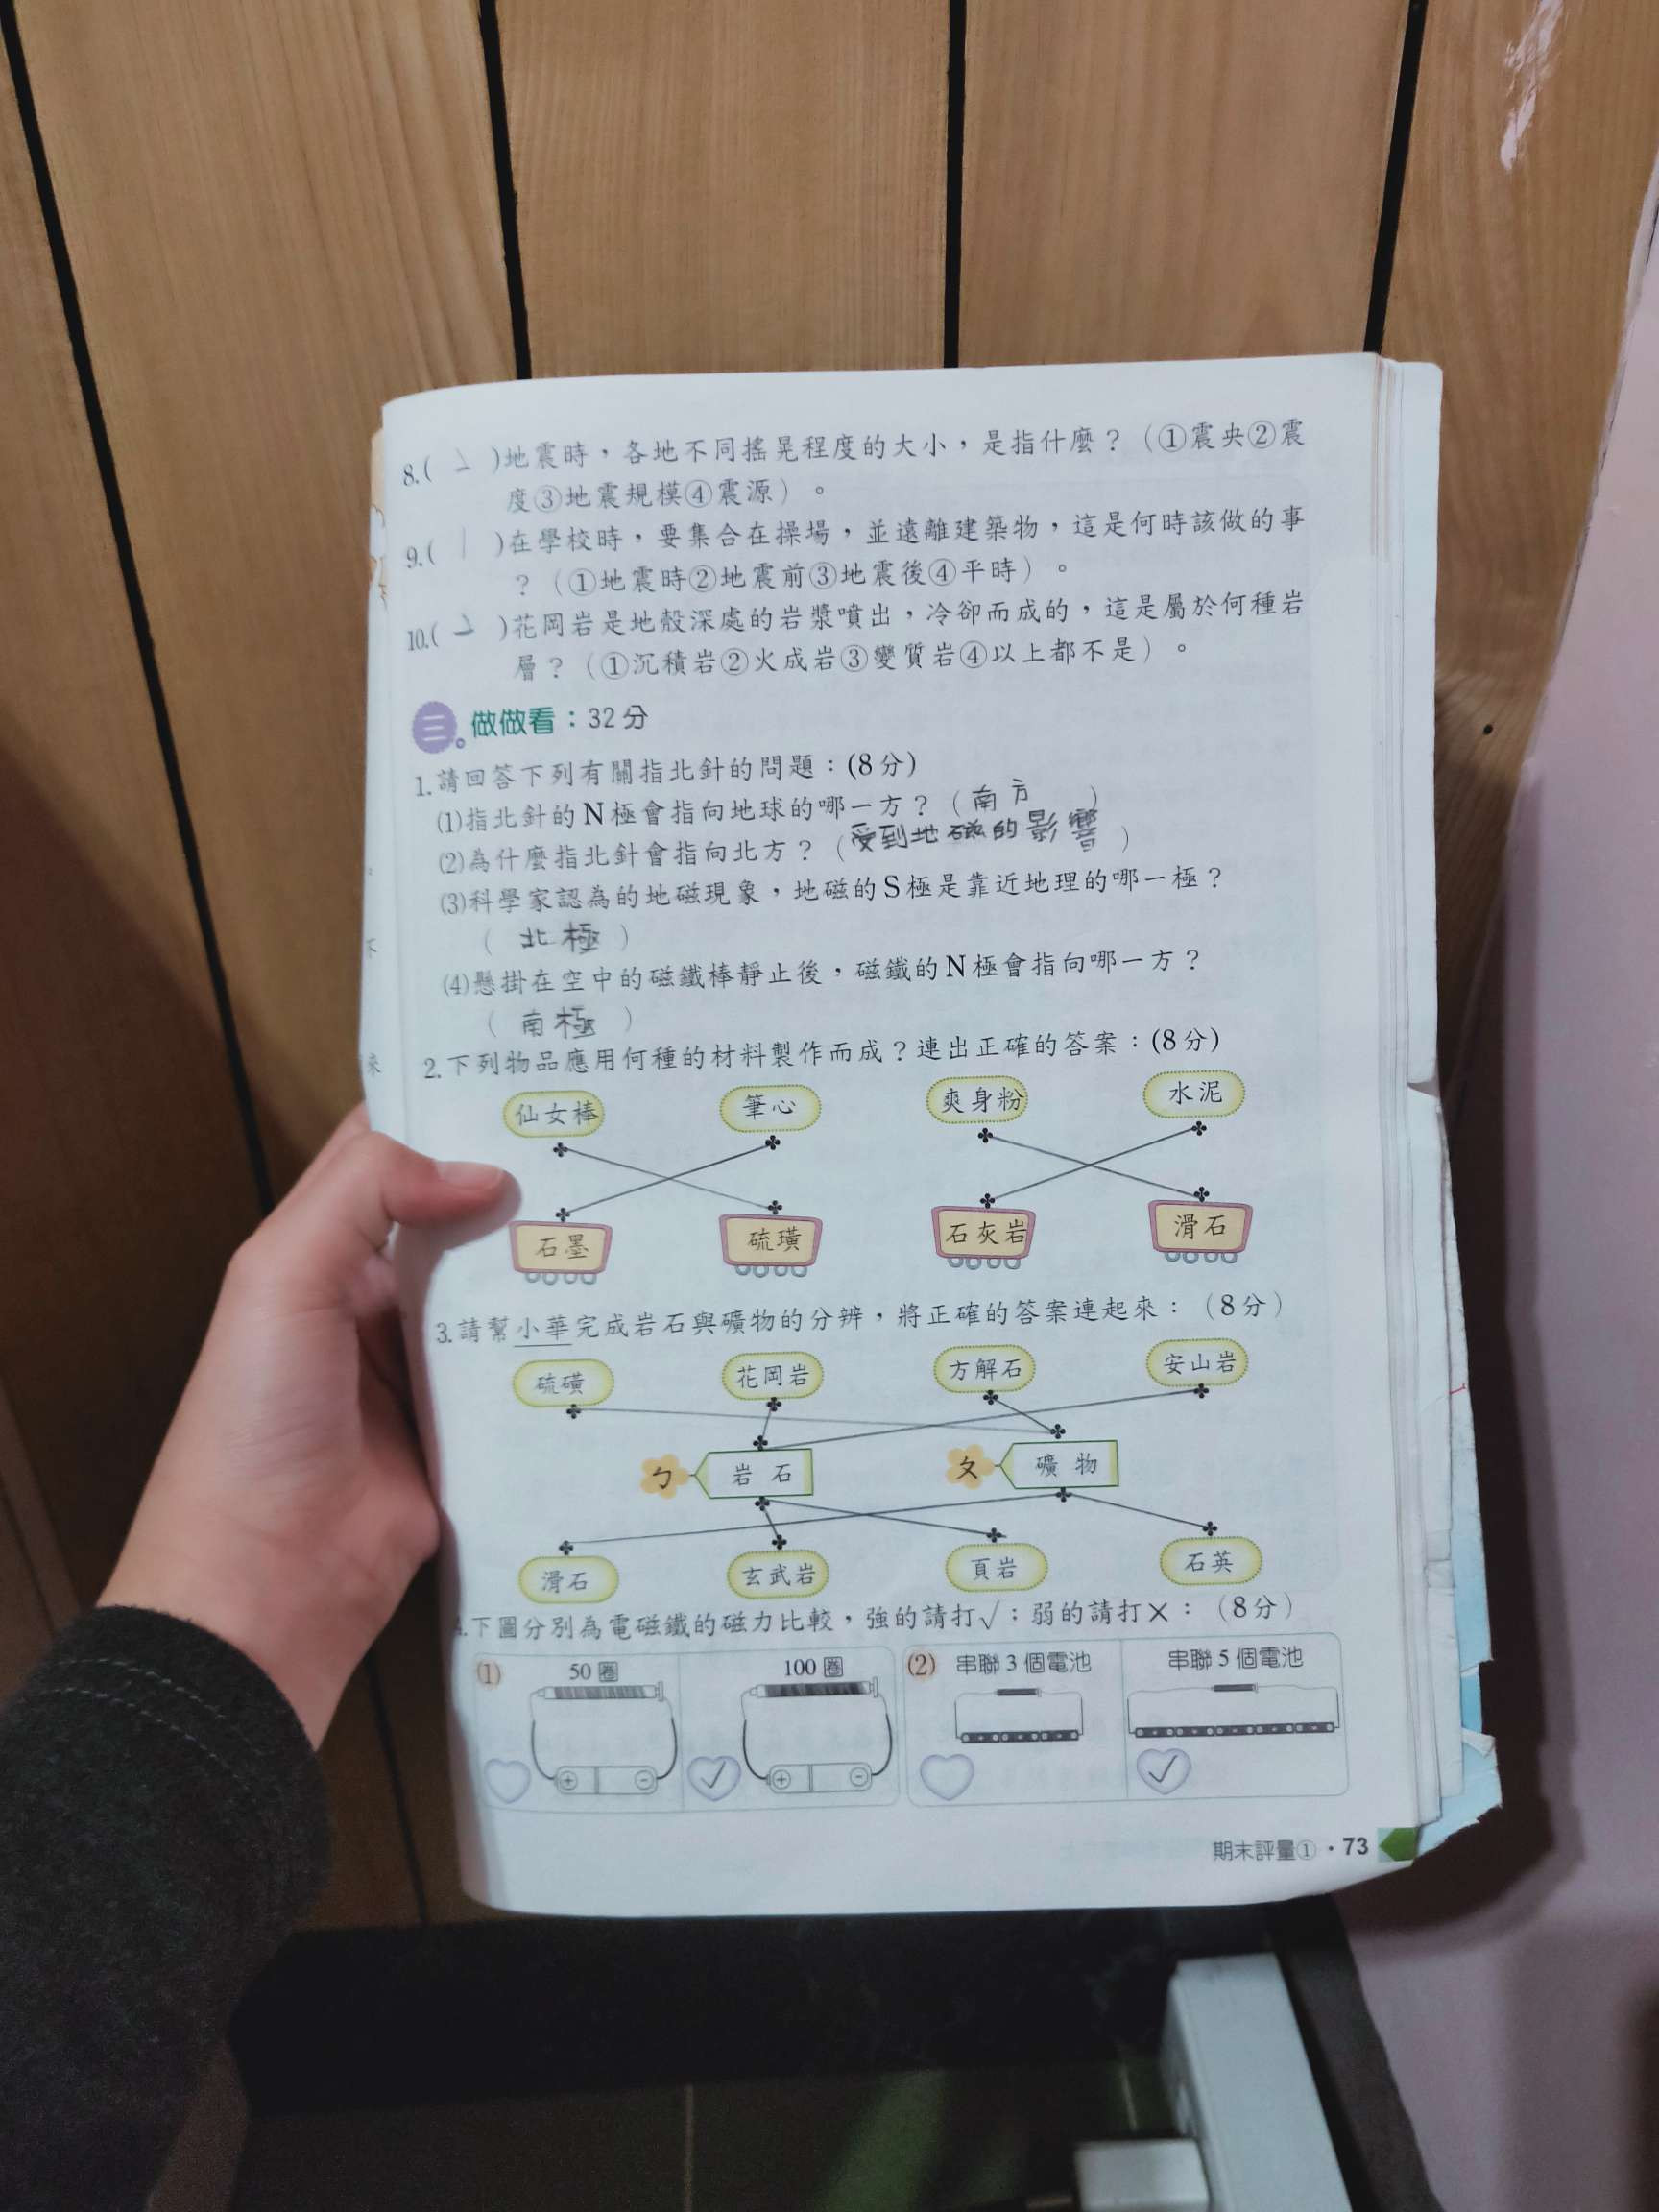 8.( 2 )地震時，各地不同搖晃程度的大小，是指什麼？（①震央②震
度③地震規模④震源）。
9.( 1 )在學校時，要集合在操場，並遠離建築物，這是何時該做的事
？（①地震時②地震前③地震後④平時）。
10.( 2 )花岡岩是地殼深處的岩漿噴出，冷卻而成的，這是屬於何種岩
層？（①沉積岩②火成岩③變質岩④以上都不是）。
三。做做看：32分
1.請回答下列有關指北針的問題：(8分)
(1)指北針的N極會指向地球的哪一方？（南方）
(2)為什麼指北針會指向北方？（受到地磁的影響）
(3)科學家認為的地磁現象，地磁的S極是靠近地理的哪一極？
（北極）
(4)懸掛在空中的磁鐵棒靜止後，磁鐵的N極會指向哪一方？
（南極）
來
2.下列物品應用何種的材料製作而成？連出正確的答案：(8分)
仙女棒 筆心 爽身粉 水泥
石墨 硫璜 石灰岩 滑石
3.請幫小華完成岩石與礦物的分辨，將正確的答案連起來：（8分）
硫磺 花岡岩 方解石 安山岩
ㄅ 岩石 ㄆ 礦物
滑石 玄武岩 頁岩 石英
4.下圖分別為電磁鐵的磁力比較，強的請打✓；弱的請打×：（8分）
(1) 50圈 100圈 (2) 串聯3個電池 串聯5個電池
+ - ✓ + - ✓
期末評量①・73